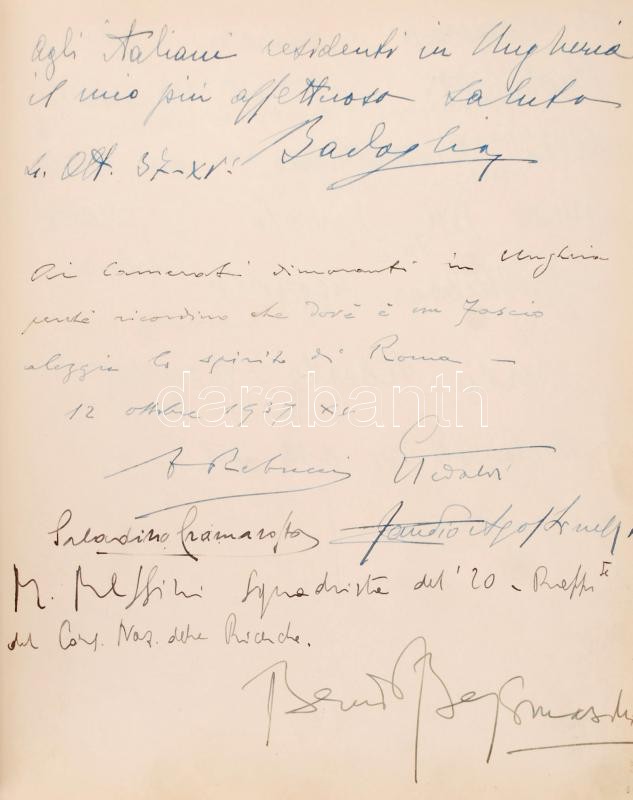 Agli italiani residenti in Ungheria
il mio più affettuoso saluto
Ott. 37-XV. Badoglio
Ai Camerati dimoranti in Ungheria
perché ricordino che dov'è è un Fascio
aleggia lo spirito di Roma —
12 ottobre 1937 XV
darabanth

Saladino Cramarossa
M. Messini Squadrista del '20 -
del Cons. Naz. delle Ricerche.